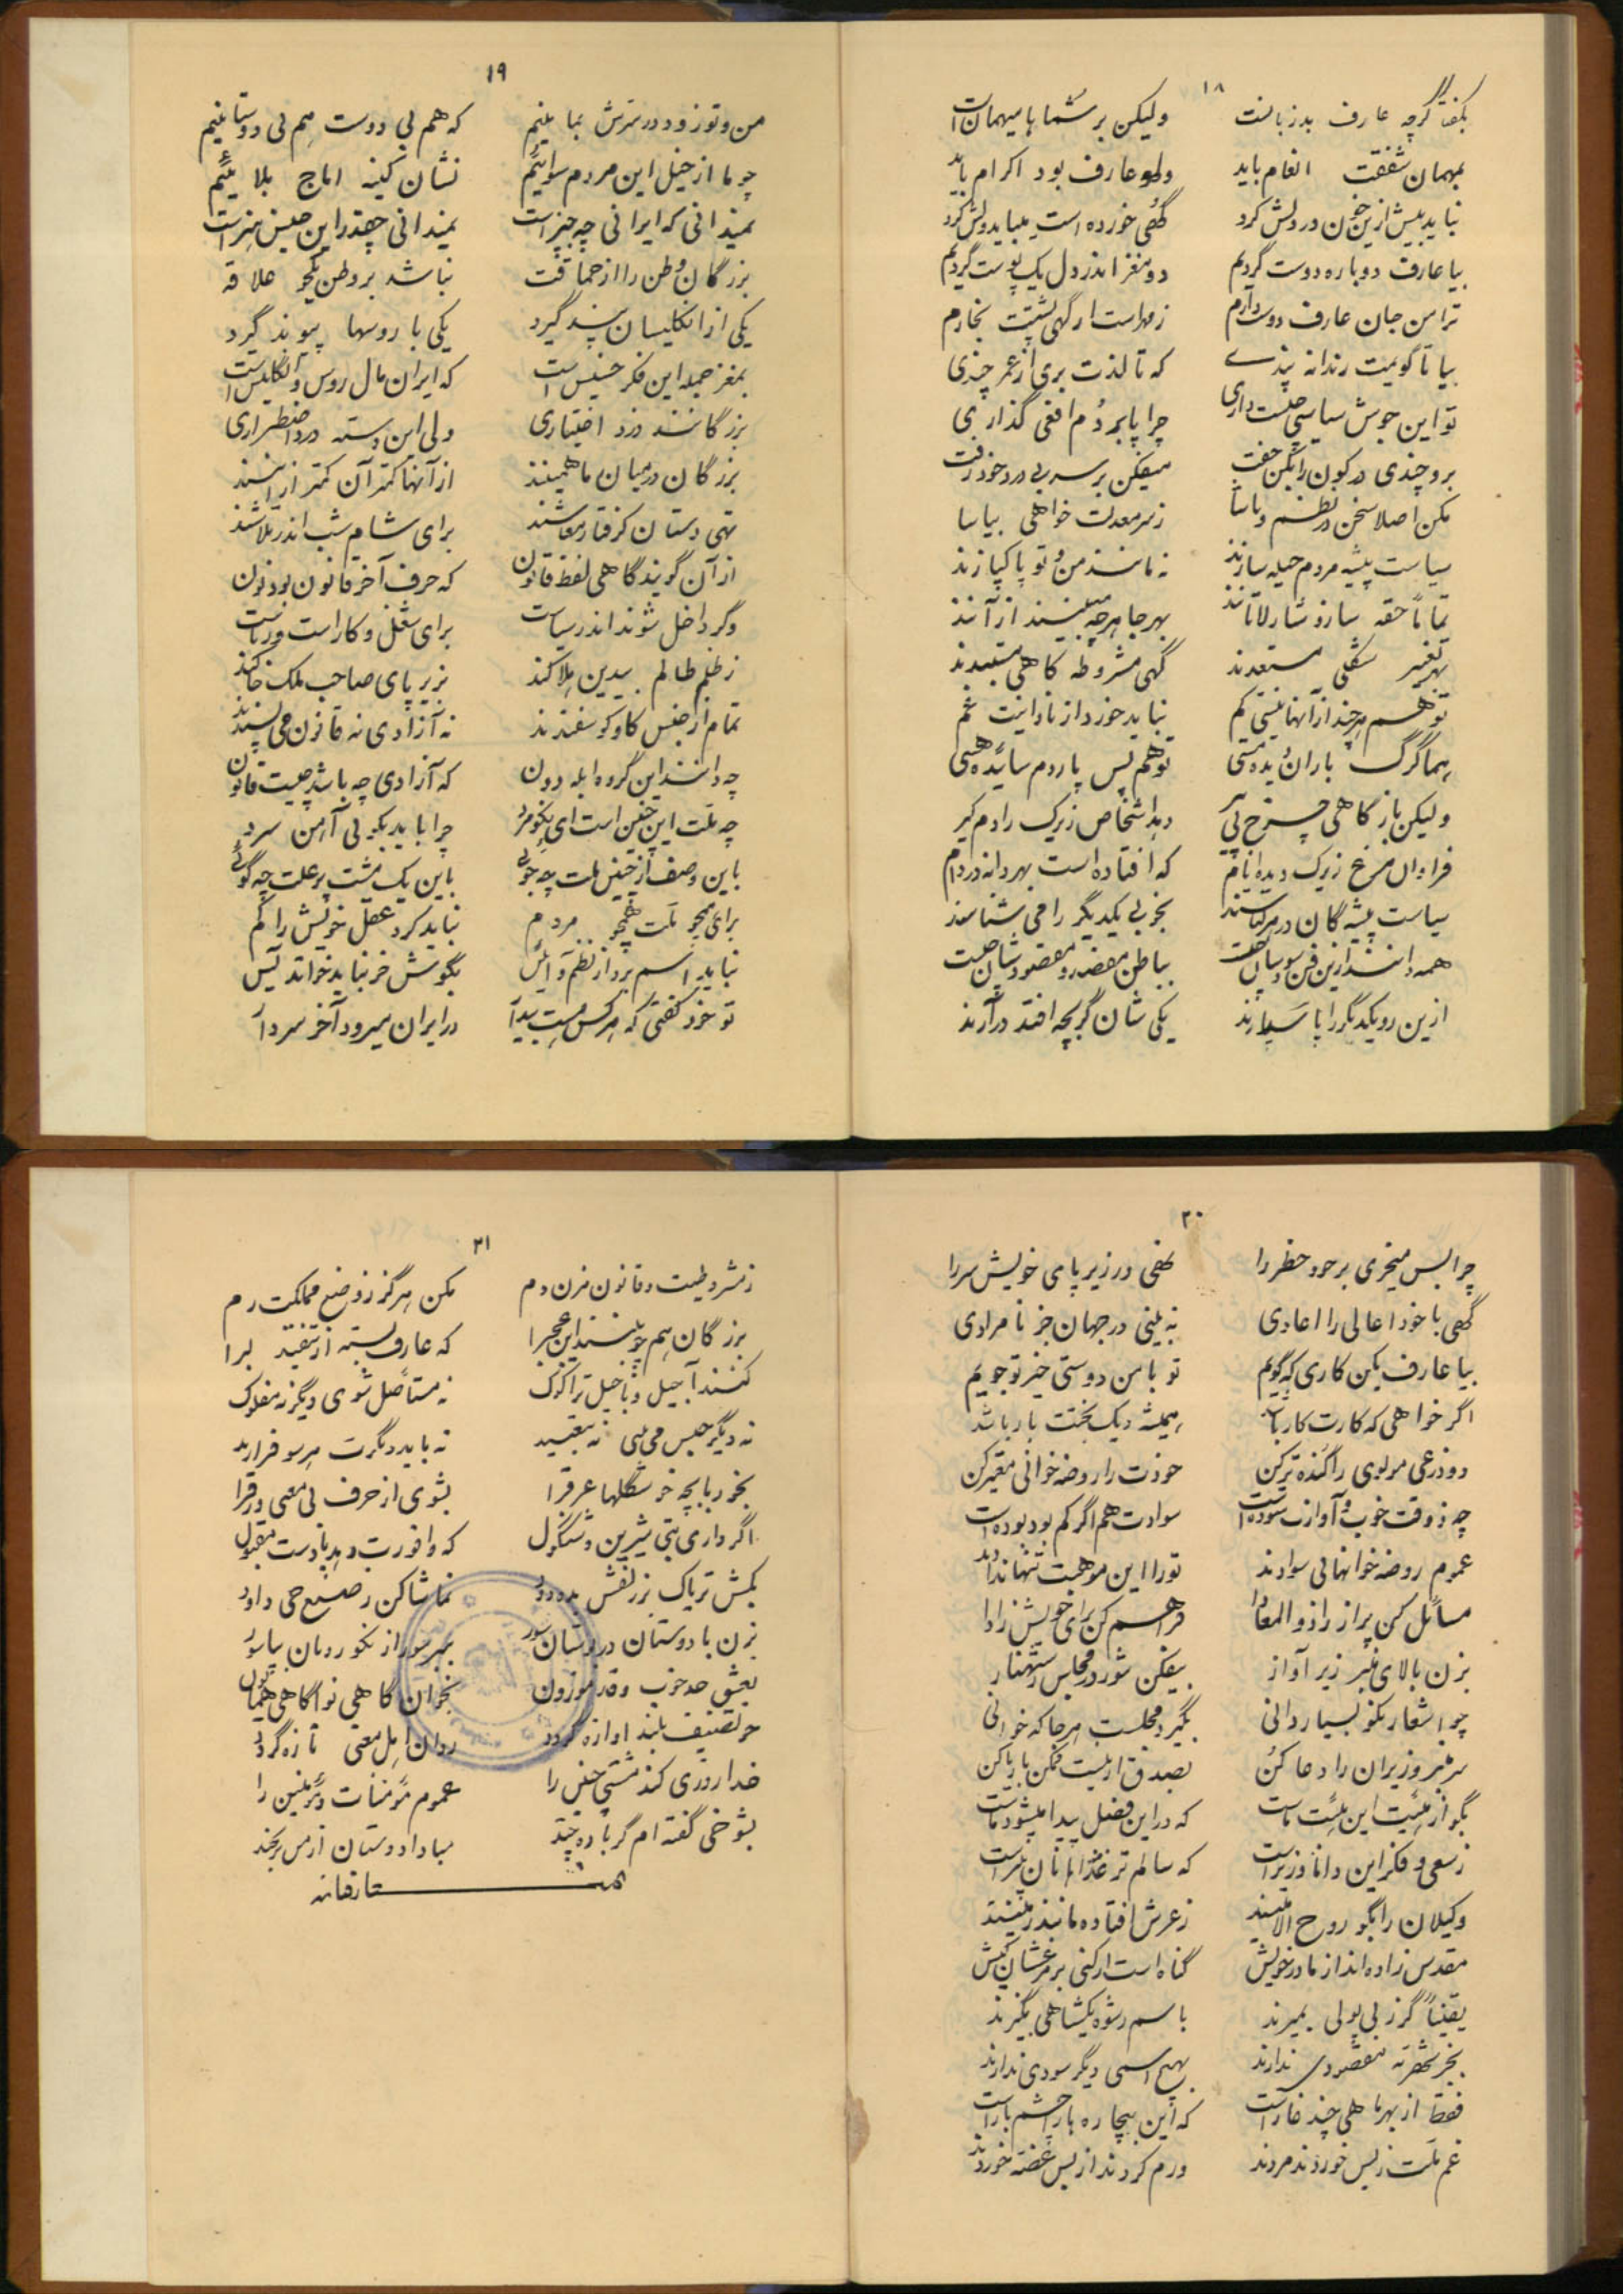 ۱۸
بگفتا گرچه عارف بدزبانست ولیکن بر شما با میهمان است
بمهمان شفقت انعام باید ولو عارف بود اکرام باید
نباید بیش ازین خون در دلش کرد گهی خورده است میباید ولش کرد
بیا عارف دوباره دوست گردیم دو مغز اندر دل یک پوست گردیم
ترا من جان عارف دوست دارم ز مهر است ار گهی پشتت بخارم
بیا تا گویمت رندانه پندی که تا لذت بری از عمر چندی
تو این جوش سیاسی چیست داری چرا پا بر دُم افعی گذاری
برو چندی در کون را بکن جفت میفکن بر سر بی درد خود زفت
مکن اصلا سخن در نظم و یاسا ز سر معدلت خواهی بیاسا
سیاست پیشه مردم حیله سازند نه مانند من و تو پاکبازند
تماماً حقه ساز و شارلاتانند بهر جا هرچه میبینند از آنند
بهر تغییر شکلی مستعدند گهی مشروطه گاهی مستبدند
تو هم هرچند از آنها نیستی کم نباید خورد از نادانیت غم
بهمان گرگ باران دیده هستی تو هم بس پاردم سائیده هستی
ولیکن باز گاهی چرخ بی پیر دهد اشخاص زیرک را دم گیر
فراوان مرغ زیرک دیده ایام که افتاده است بهر دانه در دام
سیاست پیشه گان در هر لباسند بخوبی یکدیگر را می شناسند
همه دانند ازین فن سودشان چیست بباطن مقصد و مقصودشان چیست
ازین رو یکدیگر را پا سپارند یکی شان گر بچه افتد درآرند
۱۹
من و تو زود در شرش بمانیم که هم بی دوست هم بی دوستانیم
چو ما از خیل این مردم سوائیم نشان کینه آماج بلائیم
نمیدانی که ایرانی چه چیز است نمیدانی چقدر این جنس هیز است
بزرگان وطن را از حماقت نباشد بر وطن یکجو علاقه
یکی از انگلیسان پند گیرد یکی با روسها پیوند گیرد
بمغز جمله این فکر خسیس است که ایران مال روس و انگلیس است
بزرگانند دزد اختیاری ولی این دسته دزد اضطراری
بزرگان در میان ما همینند از آنها کمتر آن کمتر از اینند
تهی دستان گرفتار معاشند برای شام شب اندر تلاشند
از آن گویند گاهی لفظ قانون که حرف آخر قانون بود نون
وگر داخل شوند اندر سیاست برای شغل و کار است و ریاست
ز ظلم ظالم بیدین هلاکند بزیر پای صاحب ملک خاکند
تمام از جنس گاو و گوسفندند نه آزادی نه قانون می پسندند
چه دانند این گروه ابله دون که آزادی چه باشد چیست قانون
چه ملت این چنین است ای نکو مرد چرا باید بکوبی آهن سرد
باین وصف از چنین ملت چه جوئی باین یک مشت پر علت چه گوئی
برای همچو ملت همچو مردم نباید کرد عقل خویش را گم
نباید اسم برد از نظم و آئین بگوش خر نباید خواند یٰس
تو خود گفتی که هرکس هست بیدا در ایران میرود آخر سر دا
۲۰
چرا بس میخری بر خود خطر را نهی در زیر پای خویش سر را
گهی با خود اعالی را اعادی نه بینی در جهان جز نامرادی
بیا عارف بکن کاری که گویم تو با من دوستی خیر تو جویم
اگر خواهی که کارت کار باشد همیشه دیگ بختت بار باشد
دو ذرعی مولوی را گنده تر کن خودت را روضه خوانی معتبر کن
چه ذوقت خوب و آوازت ستوده است سوادت هم اگر کم بود بوده است
عموم روضه خوانها بی سوادند تو را این موهبت تنها ندادند
مسائل کن پر از زاد المعادا فراهم کن برای خویش زادا
بزن بالای منبر زیر آواز بیفکن شور در مجلس ز شهناز
چو اشعار نکو بسیار دانی بگیرد مجلست هرجا که خوانی
سر منبر وزیران را دعا کن بصدق ار نیست ممکن با ریا کن
بگو از هیئت این هیئت ماست که در این فصل پیدا میشود ماست
ز سعی و فکر این دانا وزیر است که سالم تر غذا ما نان پنیر است
وکیلان را بگو روح الامینند ز عرش افتاده مابند زمینند
مقدس زاده اند از مادر خویش گناه است ار کنی بر مرغشان کیش
یقیناً گر ز بی پولی بمیرند باسم رشوه یکشاهی نگیرند
بجز شهریه مقصودی ندارند بهیچ اسمی دیگر سودی ندارند
فقط از بهر ماهی چند غاز است که این بیچاره ها را چشم باز است
غم ملت ز بس خوردند مردند ورم کردند از بس غصه خوردند
۲۱
ز مشروطیت و قانون مزن دم مکن هرگز ز وضع مملکت رم
بزرگان هم چو بینند این عجب را که عارف بسته از تنقید لب را
کنند آجیل و ماجیل ترا کوک نه مستأصل شوی دیگر نه مفلوک
نه دیگر حبس می بینی نه تبعید نه باید دیگرت هر سو فرارید
بخور با بچه خوشگلها عرقرا بشوی از حرف بی معنی ورقرا
اگر داری بتی شیرین و شنگول که وافورت دهد با دست مقبول
بکش تریاک بر زلفش بده دود تماشا کن ز صنع حی داود
بزن با دوستان در بوستان سور ببر سور از نکو رویان بیاسور
بعشق خد خوب و قد موزون بخوان گاهی نوا گاهی همایون
چو تصنیفت بلند آوازه گردد روان اهل معنی تازه گردد
خدا روزی کند مشتی چنین را عموم مؤمنات و مؤمنین را
بشوخی گفته ام گر یاوه چند مبادا دوستان از من برنجند
تمت عارفنامه